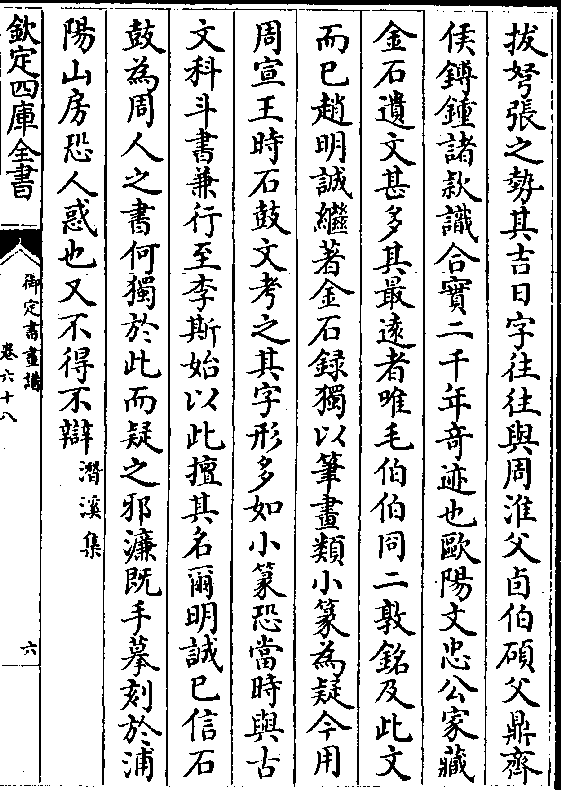 拔弩張之勢其吉日字往往與周淮父卣伯碩父鼎齊
侯鎛鍾諸款識合實二千年奇迹也歐陽文忠公家藏
金石遺文甚多其最遠者唯毛伯伯同二敦銘及此文
而已趙明誠繼著金石録獨以筆畫類小篆為疑今用
周宣王時石鼓文考之其字形多如小篆恐當時與古
文科斗書兼行至李斯始以此擅其名爾明誠已信石
鼓為周人之書何獨於此而疑之邪濂既手摹刻於浦
陽山房恐人惑也又不得不辯潛溪集
欽定四庫全書
御定書畫譜
卷六十八
六